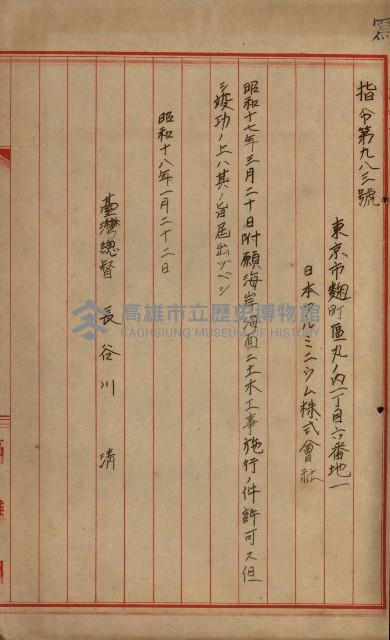 寫
指令第九八三號
東京市麴町區丸ノ內一丁目六番地一
日本アルミニウム株式會社
昭和十七年三月二十日附願海岸海面ニ土木工事施行ノ件許可ス但
シ竣功ノ上ハ其ノ旨屆出ヅベシ
昭和十八年一月二十二日
臺灣總督 長谷川 清
高雄市立歷史博物館
KAOHSIUNG MUSEUM OF HISTORY
高雄